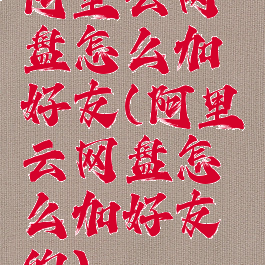 阿里云网
盘怎么加
好友(阿里
云网盘怎
么加好友